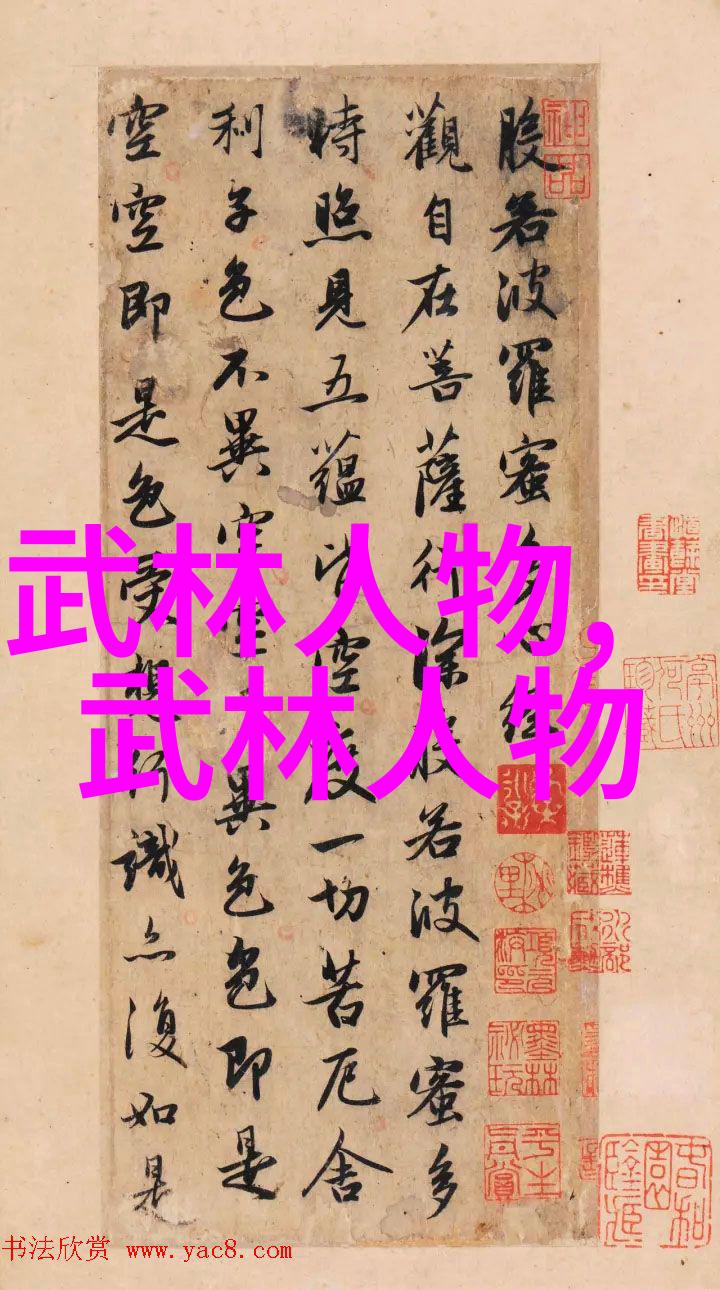 般若波羅蜜多心經
觀自在菩薩行深般若波羅蜜多
時照見五蘊皆空度一切苦厄舍
利子色不異空空不異色色即是
空空即是色受想行識亦復如是
武林人物,
武林人物
神品
墨林祕玩
书法欣赏 www.yac8.com